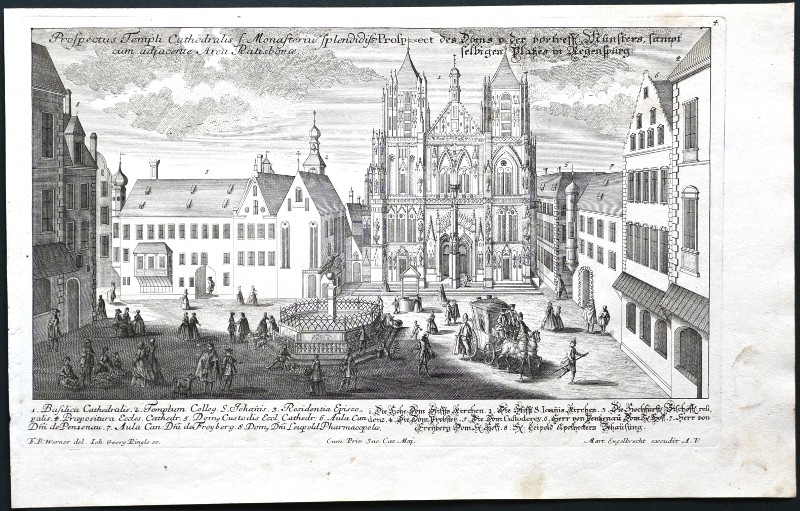 4.
Prospectus Templi Cathedralis et Monasterii splendidiss:
cum adjacente Area Ratisbonæ.
Prospect des Doms u. der vortreffl. Münsters, sampt
selbigen Platzes in Regenspurg.
1. Basilica Cathedralis. 2. Templum Colleg. S. Johañis. 3. Residentia Episco-
palis. 4. Præpositura Eccles. Cathedr. 5. Dom, Custodis Eccl. Cathedr. 6. Aula Can.
Dñi de Penzenau. 7. Aula Can. Dñi de Freyberg. 8. Dom, Dñi Leupold Pharmacopolæ.
1. Die Hohe Dom Stiffts Kirchen. 2. Die Stiffts S. Joannis Kirchen. 3. Die Hochfürstl. Bischoffl. resi-
denz. 4. Die Dom Probstey. 5. Die Dom Custoderey. 6. Herr von Penzenau Dom H. Hoff. 7. Herr von
Freyberg Dom H. Hoff. 8. H. Leipold Apotheckers Behausung.
F. B. Werner del. Joh. Georg Ringle sc.
Cum Priv. Sac. Cæs. Maj.
Mart. Engelbrecht excudit A. V.